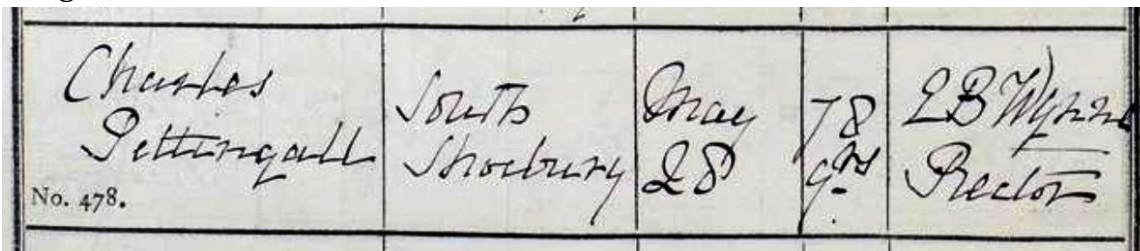 Charles
Pettingall
No. 478.
South
Shoebury
May
28
78
yrs
L B Wynne
Rector